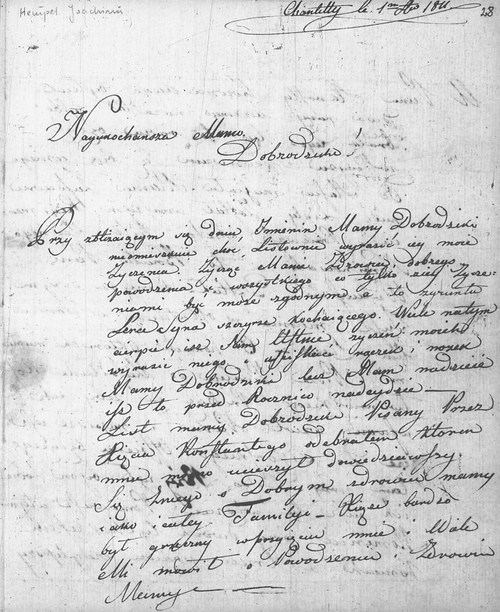 Hempel Joachim
Chantilly le 1 1811
28
Nayukochańsza Mamo
Dobrodziko!
Przy zbliżaiącym się dniu, Imienin Mamy Dobrodziki
nieomieszkam choć Listownie wyrazić iey moie
Życzenia. Życzę Mamie Zdrowia, dobrego
powodzenia i wszystkiego co tylko z iey życze-
niami być może zgodnym, a to z gruntu
Serca Syna szczyrze kochaiącego. Wiele na tym
cierpię, isz Nim Ustnie życzeń moich
wyrazić mogę i uściskać rączek i nożek
Mamy Dobrodziki lecz Mam nadzieię
isz to przed Rocznicą nadeydzie —
List mamy Dobrodziki Pisany Przez
Xięcia Konstantego odebrałem którem
mnie ucieszył dowiedziawszy
Się z niego o Dobrym zdrowiu mamy
iako i całey Familyi — Xiąże bardzo
był grzeczny w przyięciu mnie i Wiele
Mi mówił o Powodzeniu i Zdrowiu
Mamy —